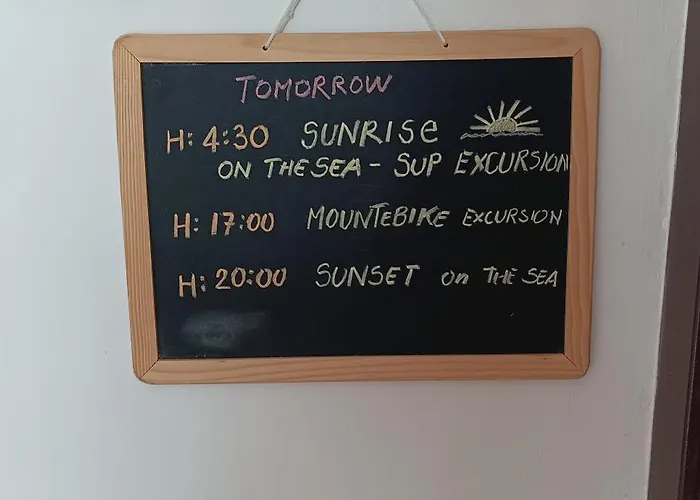 TOMORROW
H: 4:30 SUNRISE
ON THE SEA - SUP EXCURSION
H: 17:00 MOUNTEBIKE EXCURSION
H: 20:00 SUNSET on THE SEA